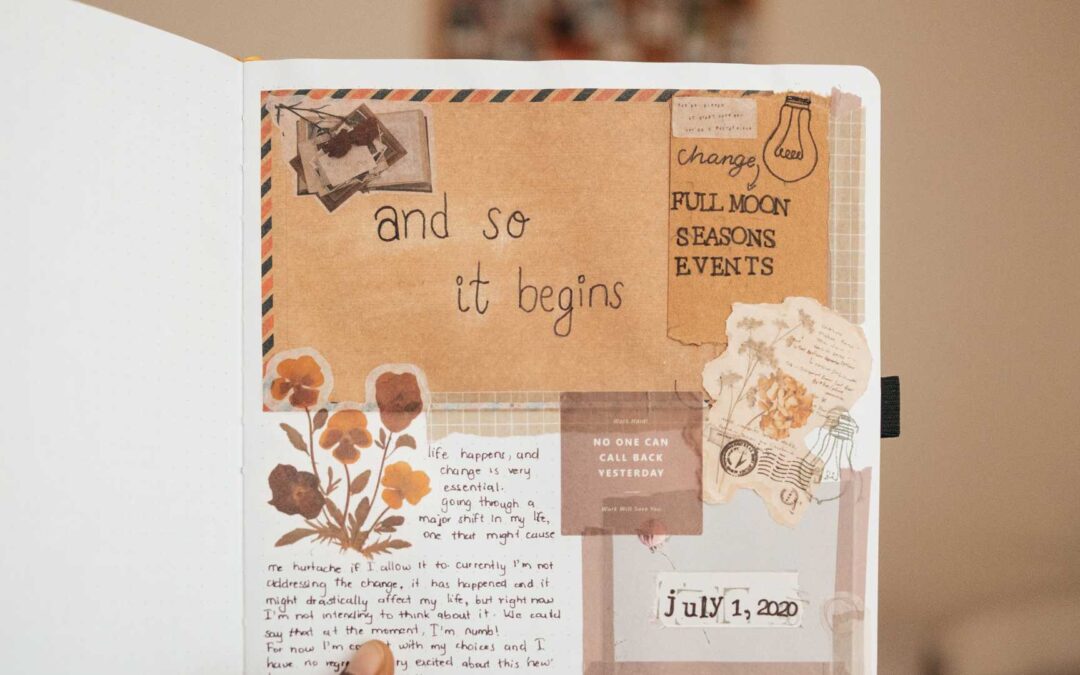 and so
it begins
change
FULL MOON
SEASONS
EVENTS
Work Hard!
NO ONE CAN
CALL BACK
YESTERDAY
Work Will Save You.
life happens, and
change is very
essential.
going through a
major shift in my life,
one that might cause
me hurtache if I allow it to. currently I'm not
addressing the change, it has happened and it
might drastically affect my life, but right now
I'm not intending to think about it. We could
say that at the moment, I'm numb!
For now I'm with my choices and I
have no excited about this new
july 1, 2020